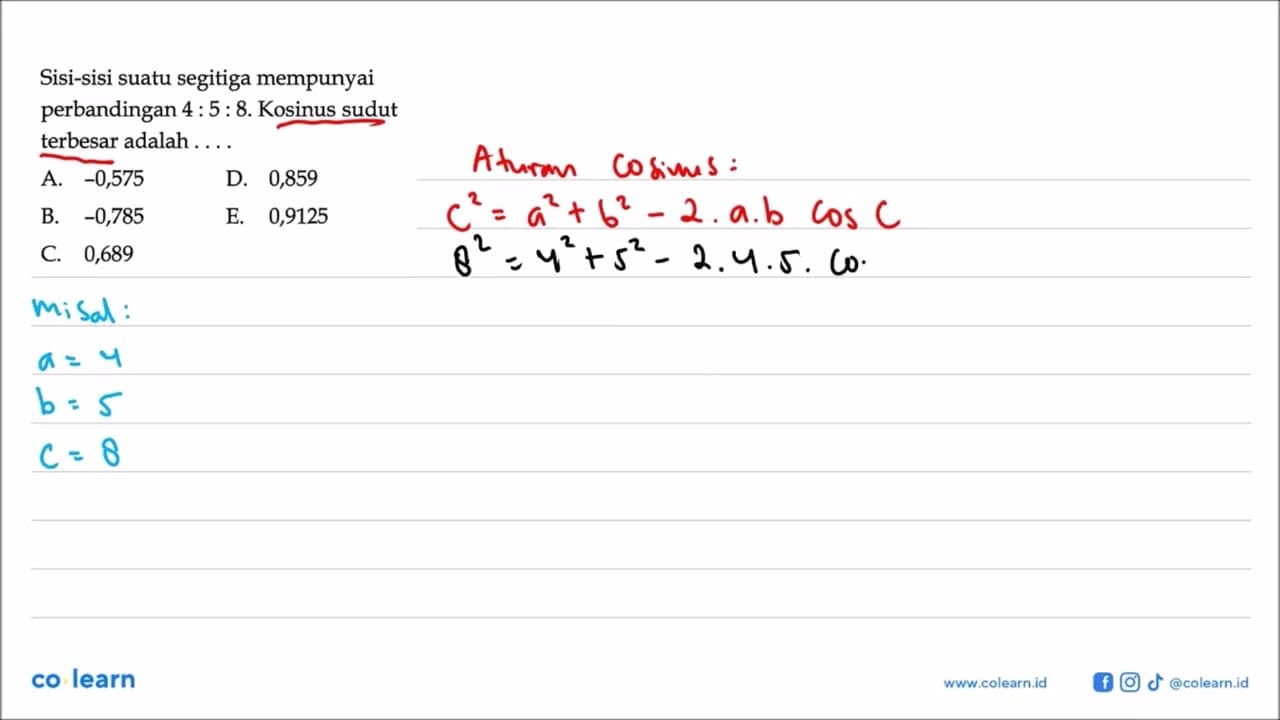 Sisi-sisi suatu segitiga mempunyai
perbandingan 4 : 5 : 8. Kosinus sudut
terbesar adalah . . . .
A. –0,575 D. 0,859
B. –0,785 E. 0,9125
C. 0,689
Aturan Cosinus :
c² = a² + b² - 2 . a . b cos C
8² = 4² + 5² - 2 . 4 . 5 . co.
Misal :
a = 4
b = 5
c = 8
co learn
www.colearn.id
@colearn.id